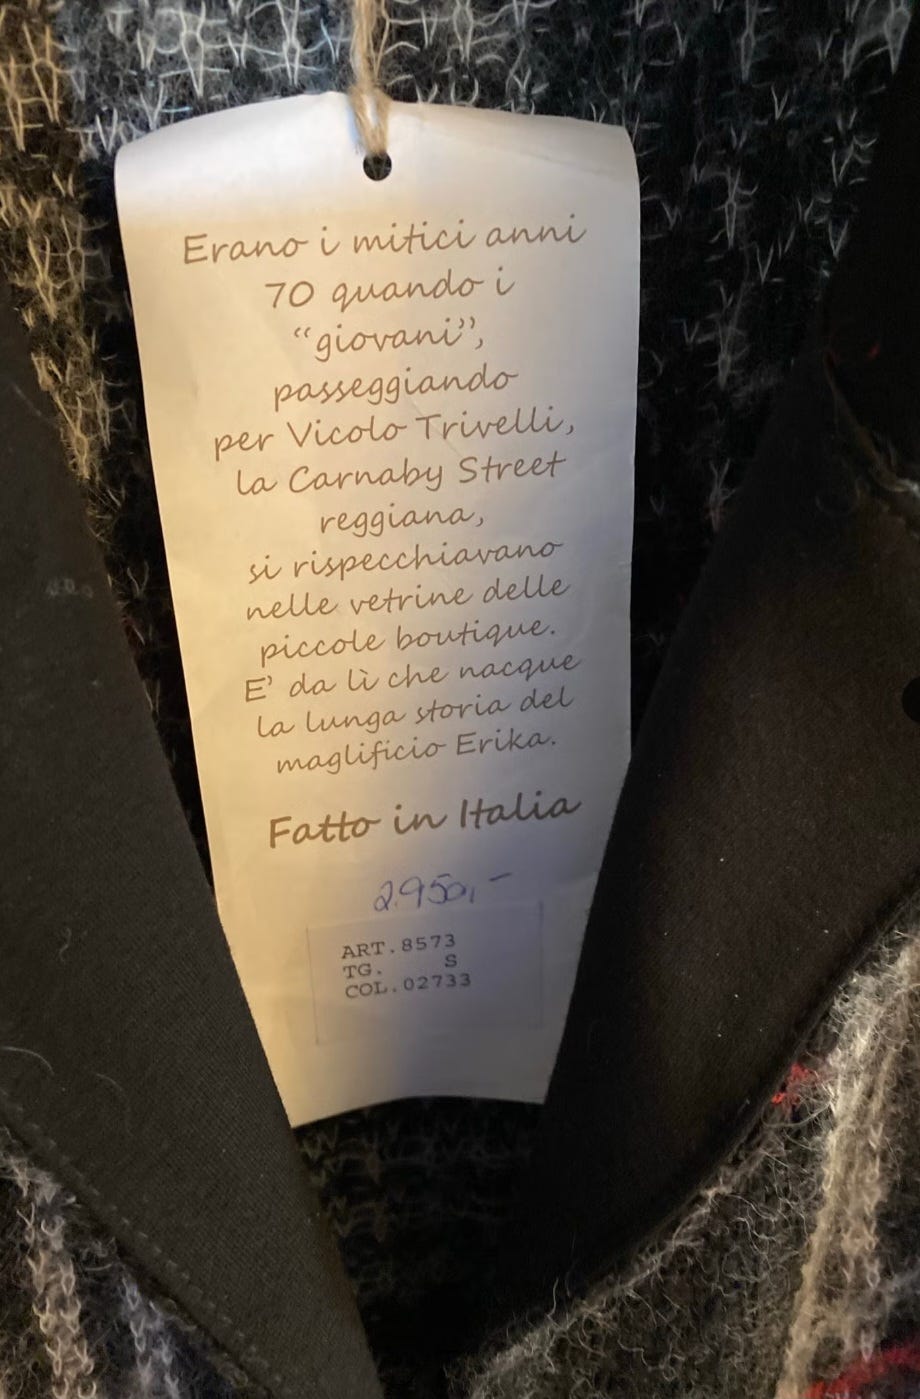 Erano i mitici anni
70 quando i
“giovani”,
passeggiando
per Vicolo Trivelli,
la Carnaby Street
reggiana,
si rispecchiavano
nelle vetrine delle
piccole boutique.
E’ da lì che nacque
la lunga storia del
maglificio Erika.
Fatto in Italia
2.950,-
ART.8573
TG. S
COL.02733